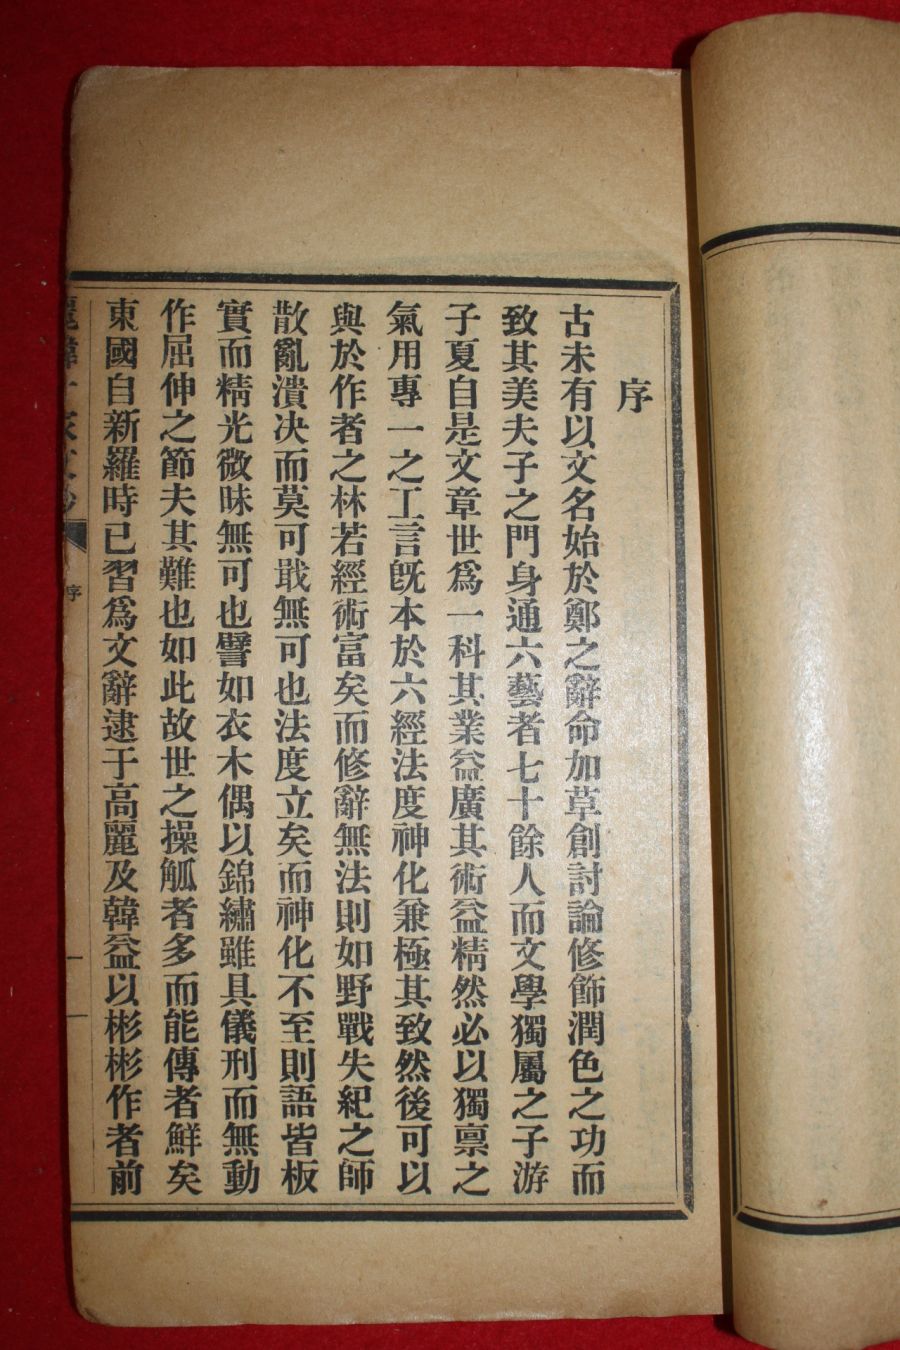 序
古未有以文名始於鄭之辭命加草創討論修飾潤色之功而
致其美夫子之門身通六藝者七十餘人而文學獨屬之子游
子夏自是文章世爲一科其業益廣其術益精然必以獨禀之
氣用專一之工言旣本於六經法度神化兼極其致然後可以
與於作者之林若經術富矣而修辭無法則如野戰失紀之師
散亂潰决而莫可戢無可也法度立矣而神化不至則語皆板
實而精光微昧無可也譬如衣木偶以錦繡雖具儀刑而無動
作屈伸之節夫其難也如此故世之操觚者多而能傳者鮮矣
東國自新羅時已習爲文辭逮于高麗及韓益以彬彬作者前
序
一